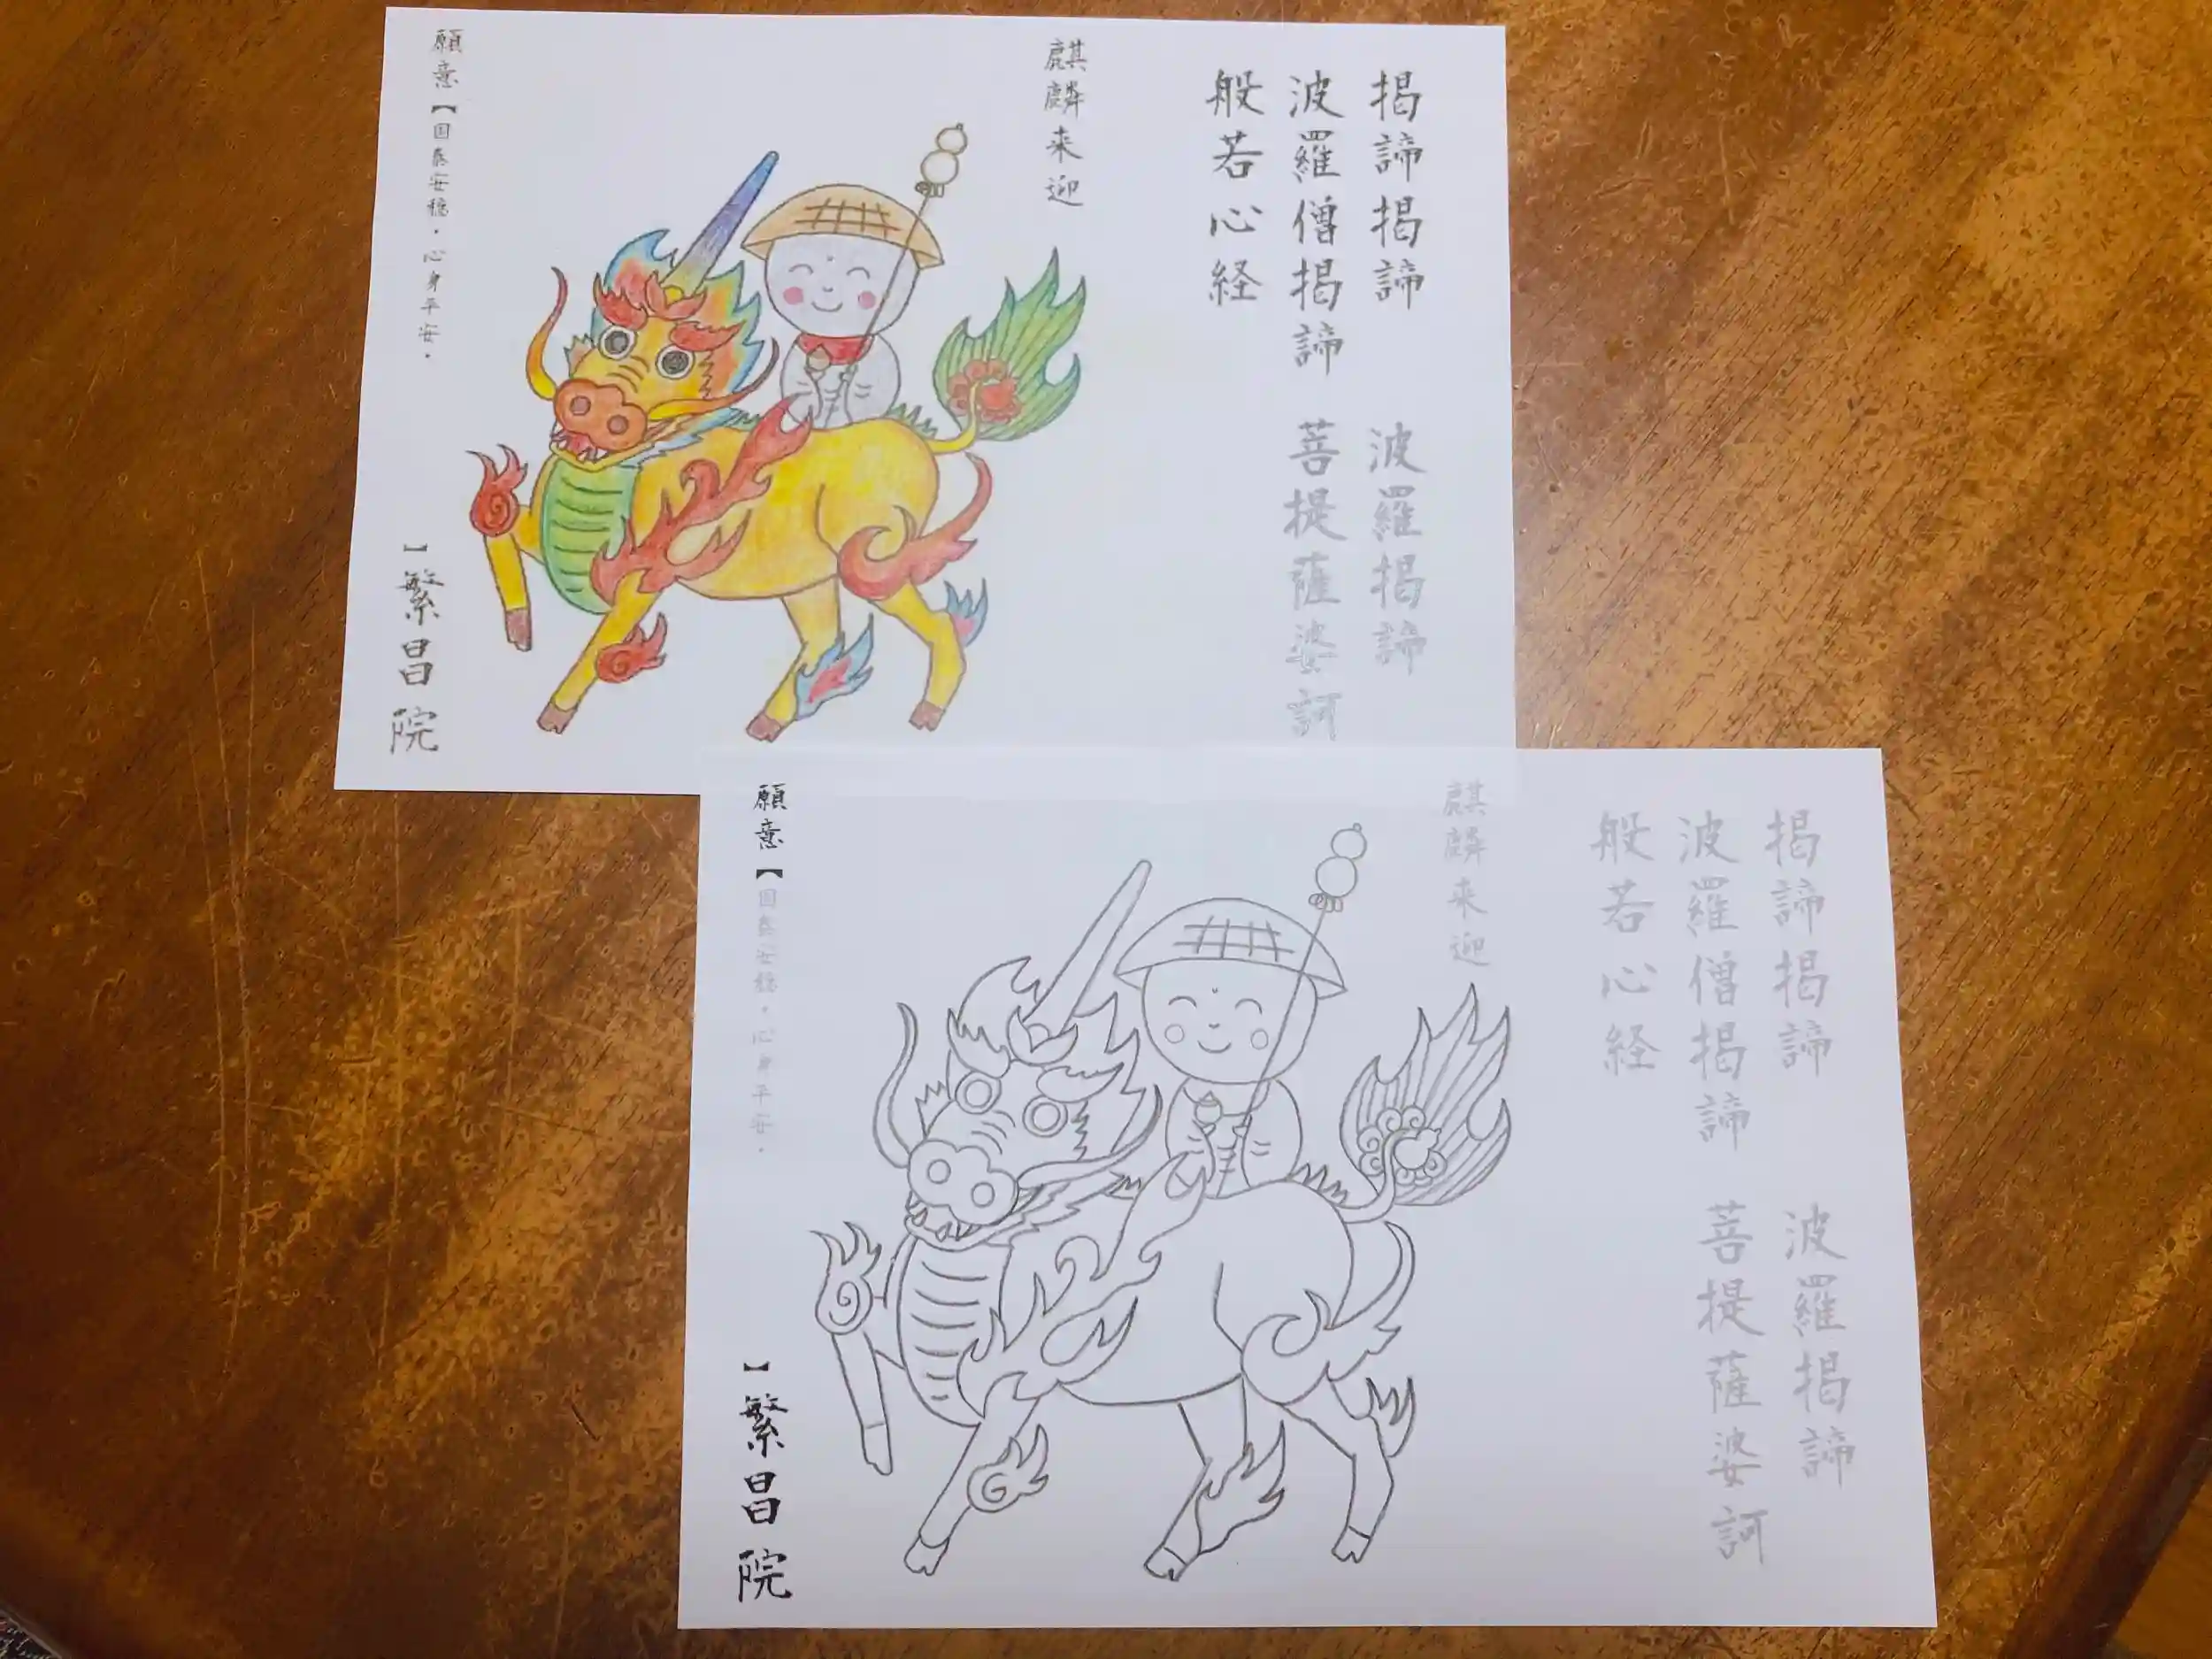 掲諦掲諦 波羅掲諦
波羅僧掲諦 菩提薩婆訶
般若心経
麒麟来迎
願意【国泰安穏・心身平安・
】繁昌院
掲諦掲諦 波羅掲諦
波羅僧掲諦 菩提薩婆訶
般若心経
麒麟来迎
願意【国泰安穏・心身平安・
】繁昌院